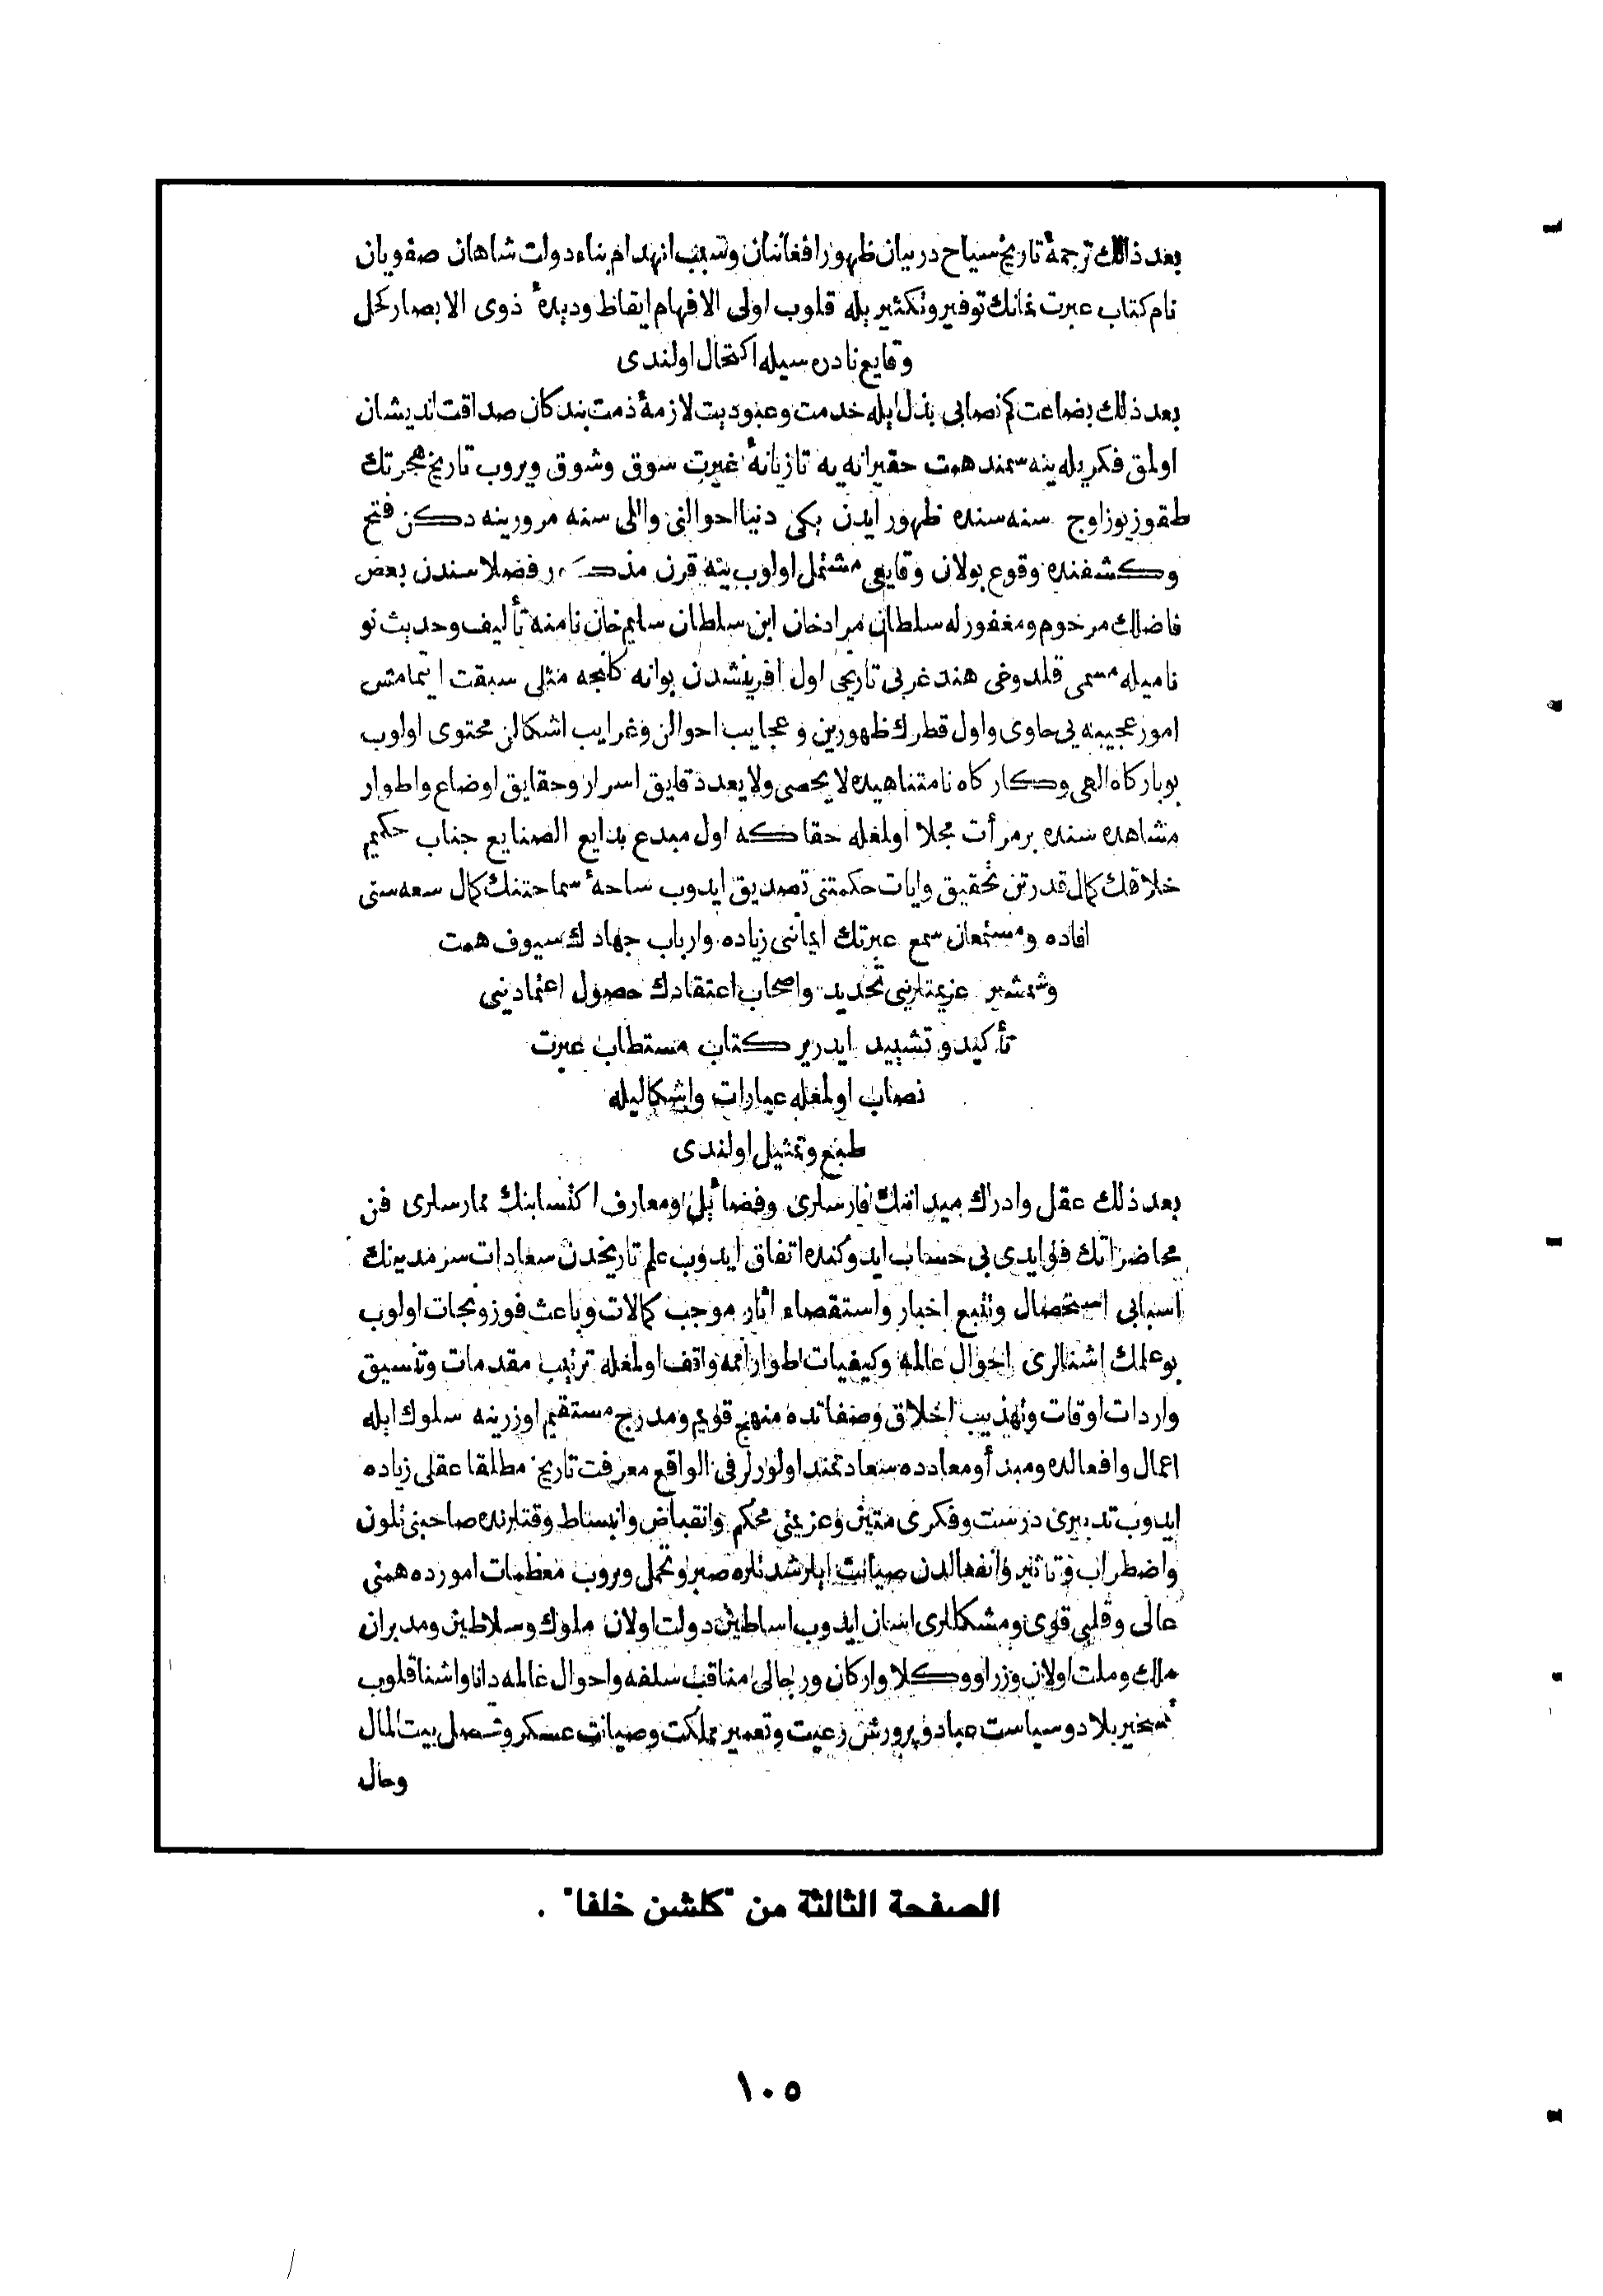 بعد ذلك ترجمهٔ تاریخ سیاح در بیان ظهور افغانیان وسبب انهدام بناء دولت شاهان صفویان
نام کتاب عبرت نمانك توفیر وتکثیر یله قلوب اولی الافهام ایقاظ ودیدهٔ ذوی الابصار کحل
وقایع نادره سیله اکتحال اولندی
بعد ذلك بضاعت کم نصابی بذل ایله خدمت وعبودیت لازمهٔ ذمت بندکان صداقت اندیشان
اولمق فکریله ینه سمند همت حقیرانه یه تازیانهٔ غیرت سوق وشوق ویروب تاریخ هجرتك
طقوز یوز اوج سنه سنده ظهور ایدن یکی دنیا احوالنی واللی سنه مرورینه دکن فتح
وکشفنده وقوع بولان وقایعی مشتمل اولوب ینه قرن مذکور فضلاسندن بعض
فاضلك مرحوم ومغفور له سلطان مراد خان ابن سلطان سلیم خان نامنه تألیف وحدیث نو
نامیله مسمی قلدوغی هند غربی تاریخی اول افرینشدن بوانه کلنجه مثلی سبقت ایتمامش
امور عجیبه یی حاوی واول قطرك ظهورین وعجایب احوالن وغرایب اشکالن محتوی اولوب
بو بارکاه الهی وکارکاه نامتناهیده لا یحصی ولا یعد دقایق اسرار وحقایق اوضاع واطوار
مشاهده سنده بر مرأت مجلا اولمغله حقاکه اول مبدع بدایع الصنایع جناب حکیم
خلاقك کمال قدرتن تحقیق وایات حکمتنی تصدیق ایدوب ساحهٔ سماحتنك کمال سعه سنی
افاده ومستمعان سمع عبرتك ایماننی زیاده وارباب جهادك سیوف همت
وشمشیر عزیمتلرینی تحدید واصحاب اعتقادك حصول اعتمادینی
تأکید وتشیید ایدر بر کتاب مستطاب عبرت
نصاب اولمغله عبارات واشکالیله
طبع وتمثیل اولندی
بعد ذلك عقل وادراك میداننك فارسلری وفضائل ومعارف اکتسابنك ممارسلری فن
محاضراتك فوایدی بی حساب ایدوکنده اتفاق ایدوب علم تاریخدن سعادات سرمدینك
اسبابی استحصال وتتبع اخبار واستقصاء اثار موجب کمالات وباعث فوز ونجات اولوب
بو علمك اشنالری احوال عالمه وکیفیات اطوار اممه واقف اولمغله ترتیب مقدمات وتنسیق
واردات اوقات وتهذیب اخلاق وصفاتده منهج قویم ومدرج مستقیم اوزرینه سلوك ایله
اعمال وافعالده ومبدأ ومعادده سعادتمند اولورلر فی الواقع معرفت تاریخ مطلقا عقلی زیاده
ایدوب تدبیری درست وفکری متین وعزیمی محکم وانقباض وانبساط وقتلرنده صاحبنی تلون
واضطراب وتاثیر وانفعالدن صیانت ایلر شدتلره صبر وتحمل ویروب معظمات امورده همتی
عالی وقلبی قوی ومشکللری اسان ایدوب اساطین دولت اولان ملوك وسلاطین ومدبران
ملك وملت اولان وزرا ووکلا وارکان ورجالی مناقب سلفه واحوال عالمه دانا واشنا قلوب
تسخیر بلاد وسیاست عباد وپرورش رعیت وتعمیر مملکت وصیانت عسکر وتحصیل بیت المال
وحال
الصفحة الثالثة من "كلشن خلفا" .
١٠٥